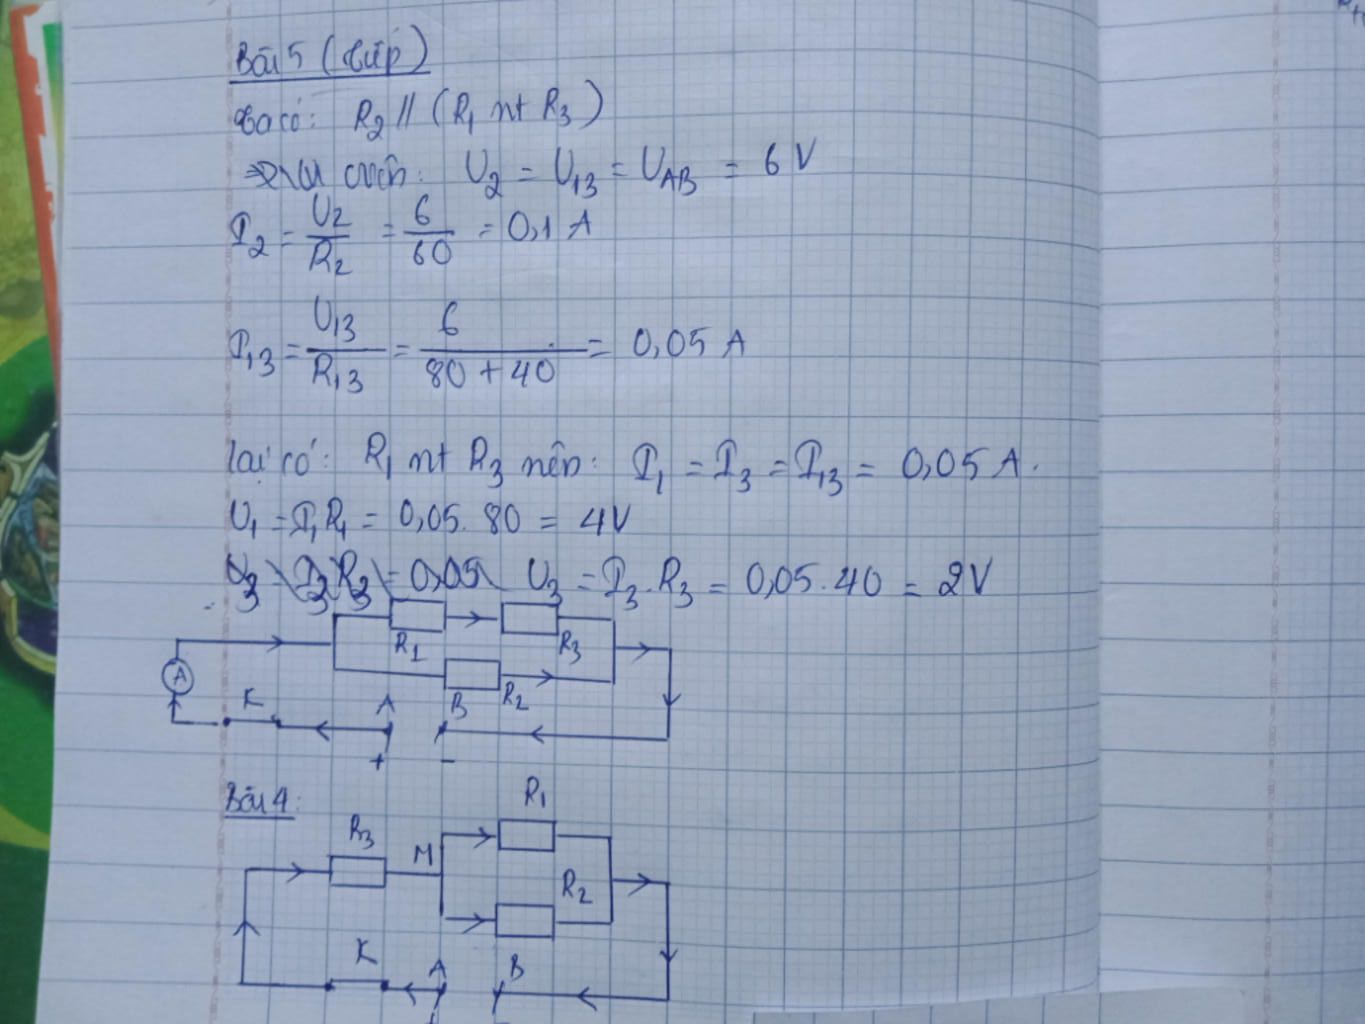 Bài 5 (tiếp)
Ta có: R₂ // (R₁ nt R₃)
nên: U₂ = U₁₃ = U_AB = 6 V
I₂ = U₂/R₂ = 6/60 = 0,1 A
I₁₃ = U₁₃/R₁₃ = 6/(80 + 40) = 0,05 A
lại có: R₁ nt R₃ nên: I₁ = I₃ = I₁₃ = 0,05 A.
U₁ = I₁R₁ = 0,05. 80 = 4V
U₃ = I₃R₃ = 0,05 U₃ = I₃. R₃ = 0,05. 40 = 2V
R₁ R₃
A
K A B R₂
+ -
Bài 4:
R₁
R₃ M
R₂
K A B